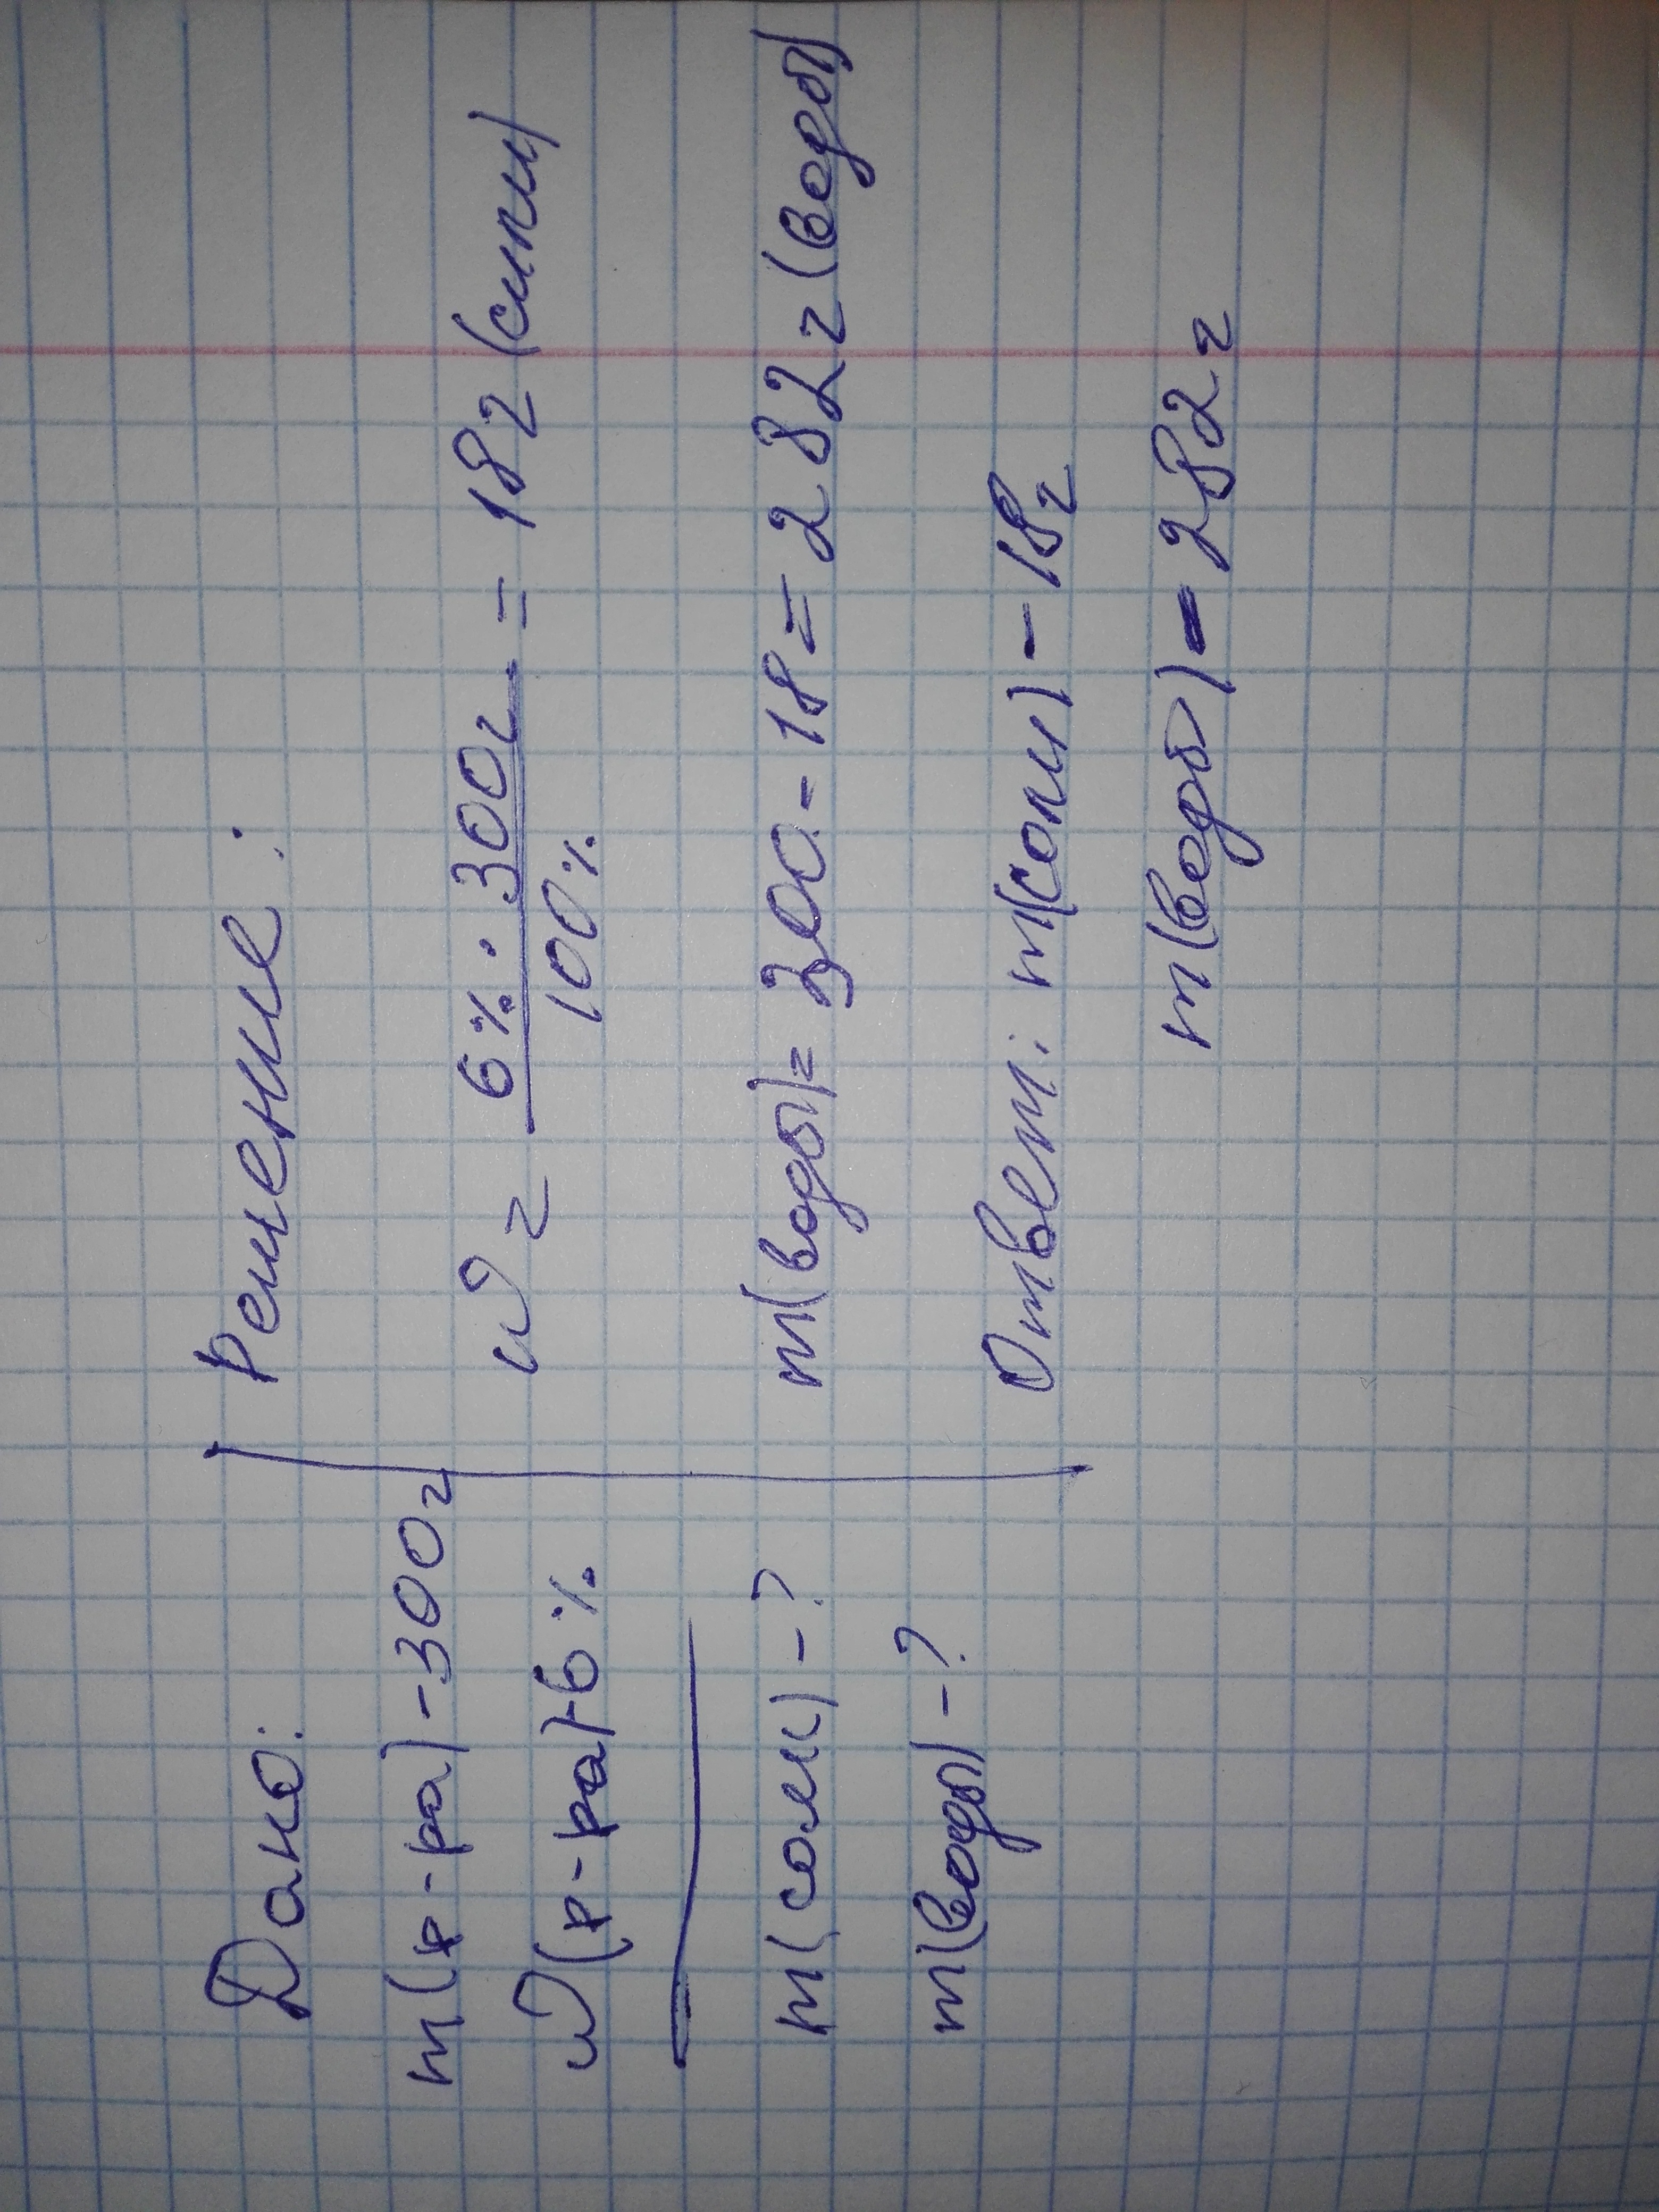 Дано:
m(р-ра) -300г
W(р-ра)-6%
m(соли) -?
m(воды) -?
Решение:
W = 6% · 300г / 100% = 18г (соли)
m(воды) = 300 - 18 = 282г (воды)
Ответ: m(соли) - 18г
m(воды) - 282г